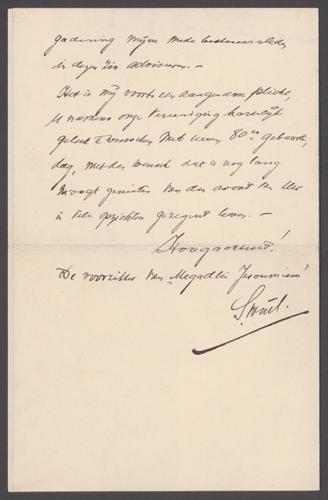 gadering mijne mede bestuursleden
in dezen zin adviseeren. —
Het is mij voorts een aangename plicht,
U namens onze Vereeniging hartelijk
geluk te wenschen met uwen 80en geboorte,
dag, met den wensch dat u nog lang
moogt genieten van den avond van Uw
in vele opzichten gezegend leven. —
Hoogachtend!
De voorzitter van „Megadlei Jesoumiem"